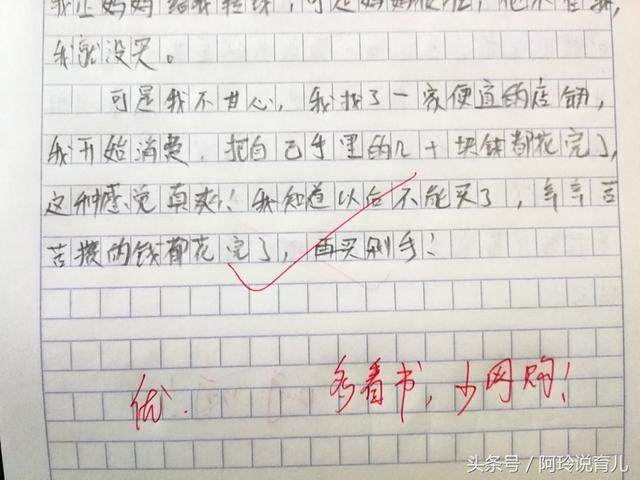 我让妈妈给我转球，可是妈妈很忙，他不管我，
我就没买。
可是我不甘心，我找了一家便宜的店铺，
我开始消费，把自己手里的几十块钱都花完了，
这种感觉真爽！我知道以后不能买了，辛辛苦
苦攒的钱都花完了，再买剁手！
优.
多看书，少网购！
头条号 / 阿玲说育儿